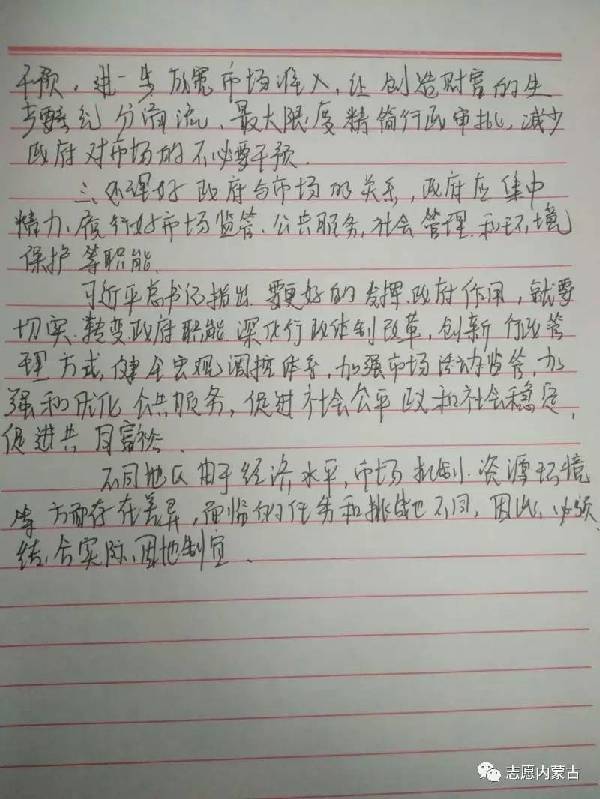 干预，进一步放宽市场准入，让创造财富的生
产要素充分涌流、最大限度精简行政审批，减少
政府对市场的不必要干预.
三、处理好政府与市场的关系，政府应集中
精力、履行好市场监管、公共服务，社会管理和环境
保护等职能.
习近平总书记指出 要更好的发挥政府作用，就要
切实转变政府职能 深化行政体制改革，创新行政管
理方式，健全宏观调控体系，加强市场活动监管，加
强和优化公共服务，促进社会公平正义和社会稳定，
促进共同富裕.
不同地区由于经济水平，市场机制 资源环境
等方面存在差异，面临的任务和挑战也不同，因此、必须
结合实际，因地制宜.
志愿内蒙古